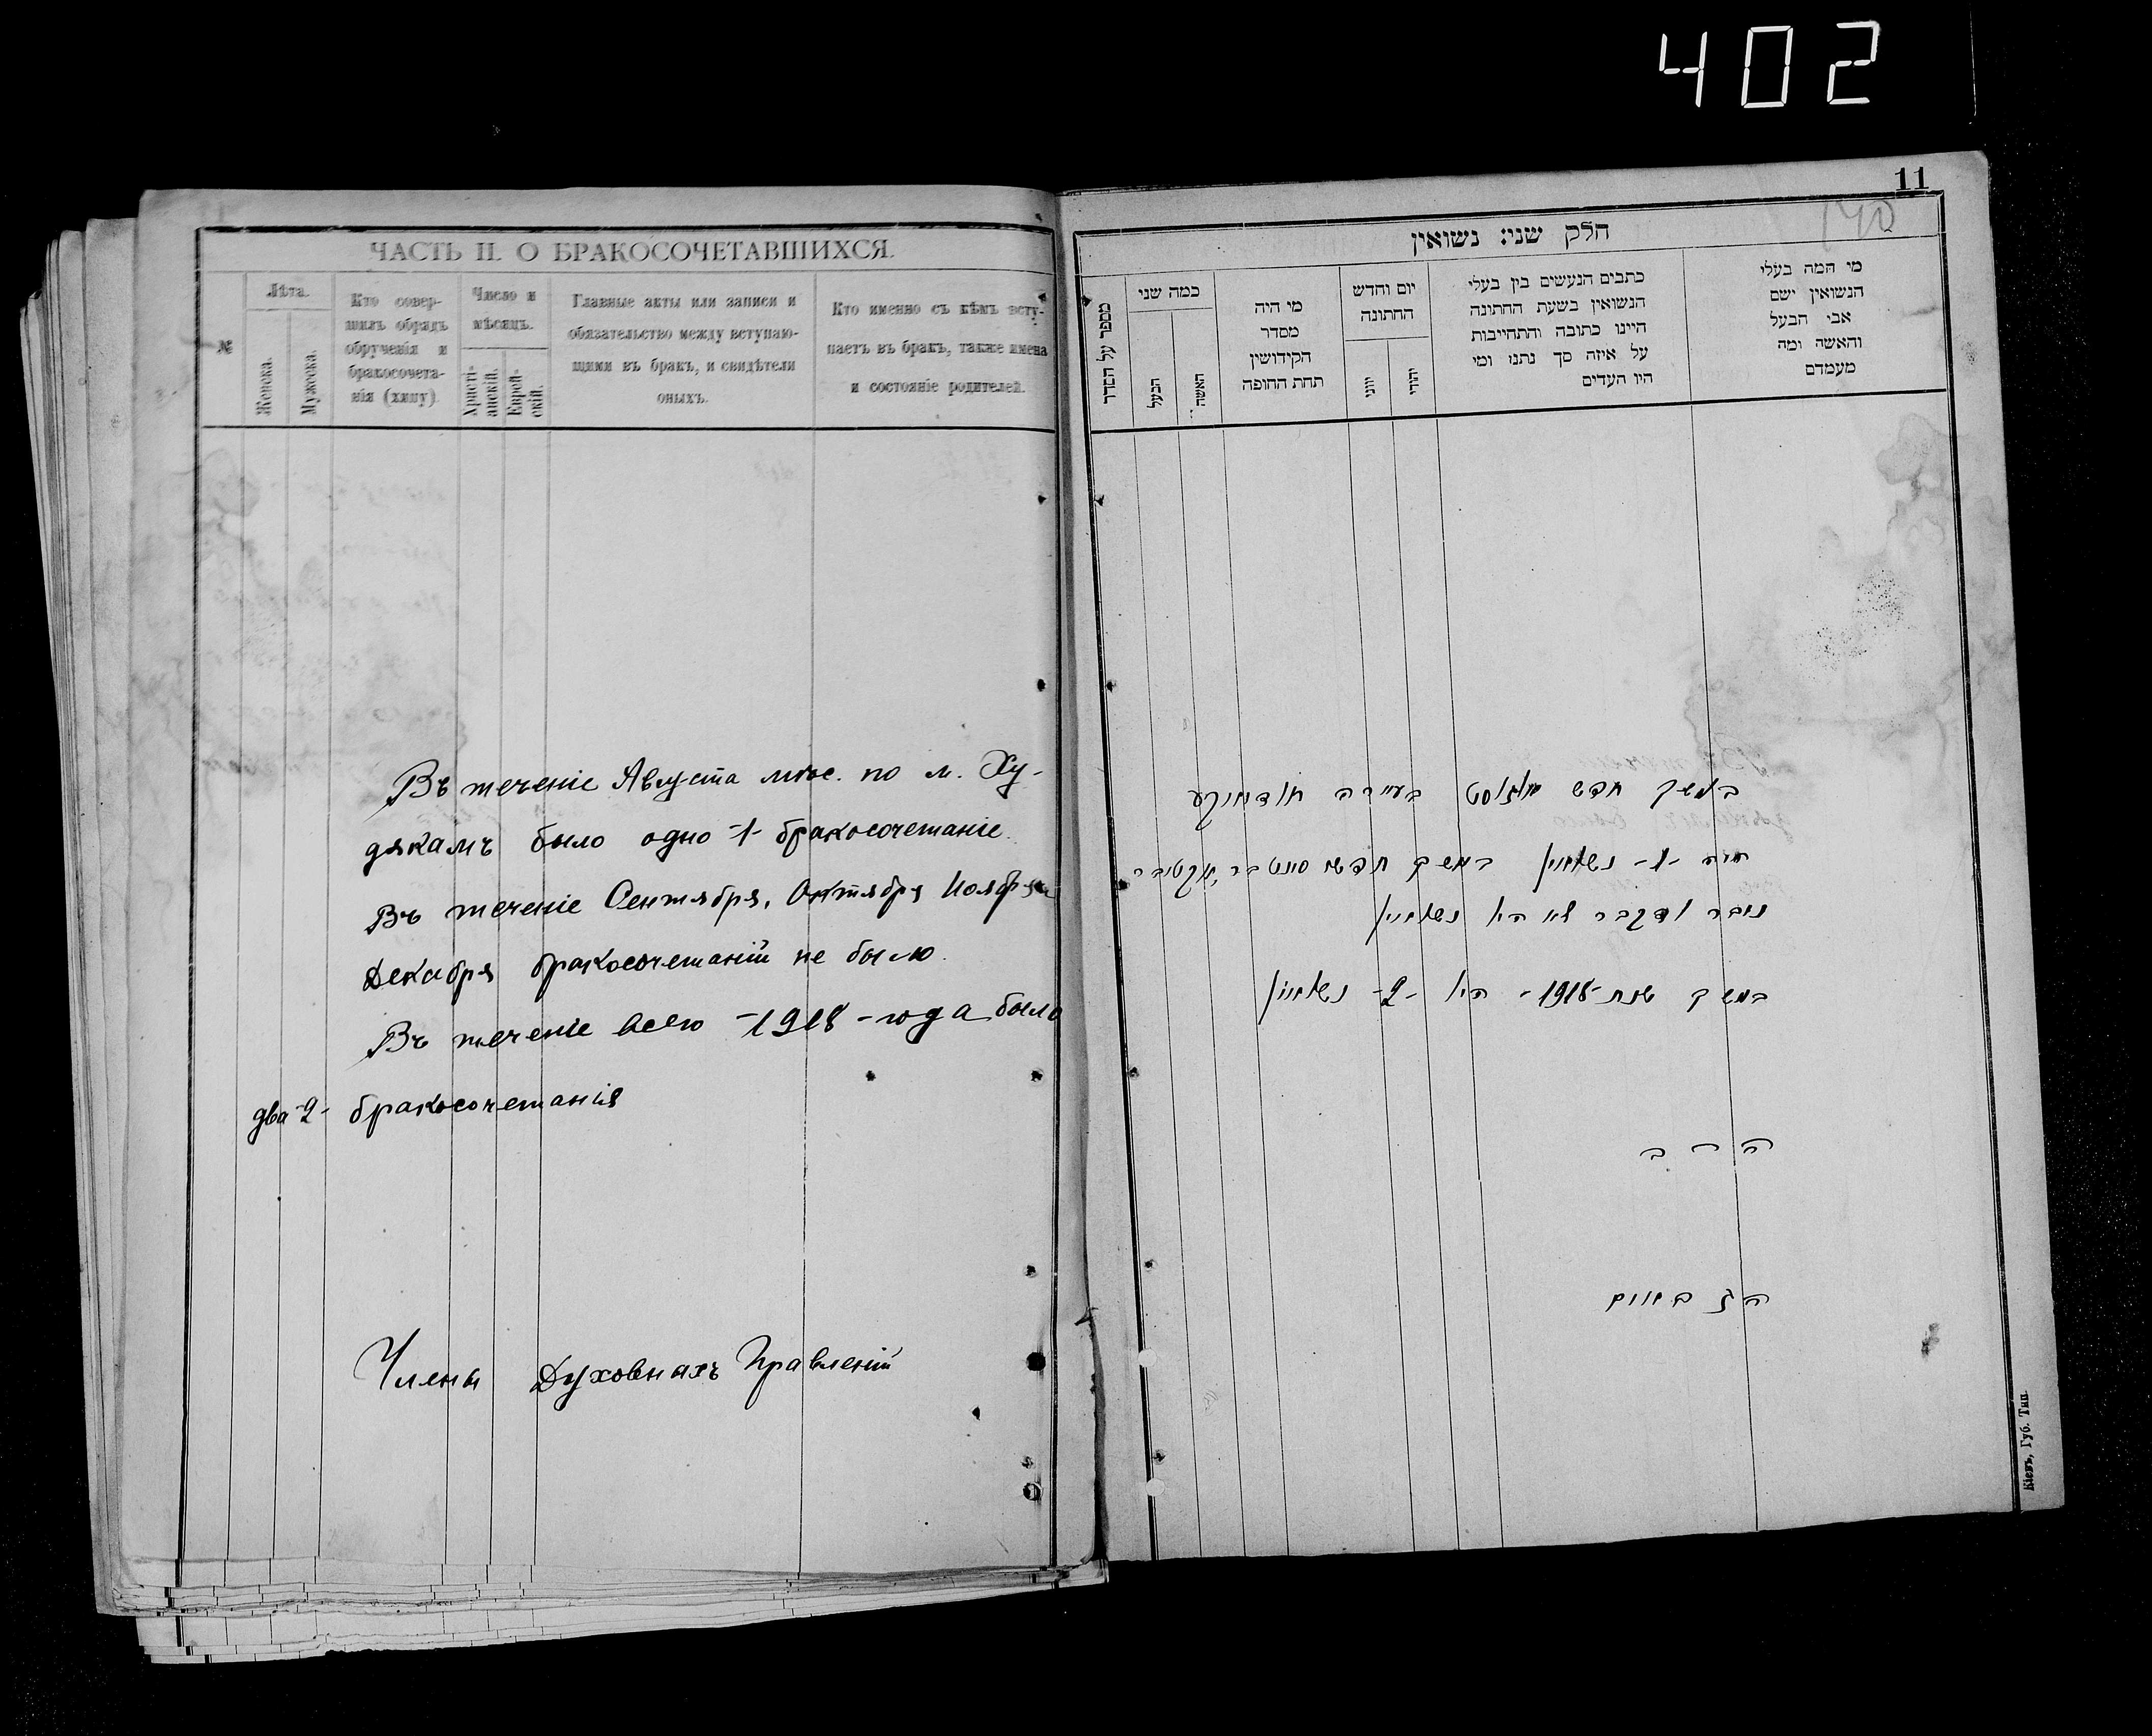 402
ЧАСТЬ II. О БРАКОСОЧЕТАВШИХСЯ.
№
Лѣта.
Женска.
Мужеска.
Кто совер-
шилъ обрядъ
обрученія и
бракосочета-
нія (хипу)
Число и
мѣсяцъ.
Христі-
анскій.
Еврей-
скій.
Главные акты или записи и
обязательство между вступаю-
щими въ бракъ, и свидѣтели
оныхъ.
Кто именно съ кѣмъ всту-
паетъ въ бракъ, также имена
и состояніе родителей.
Въ теченіе Августа мѣс. по м. Ху-
дякамъ было одно -1- бракосочетаніе.
Въ теченіе Сентября, Октября Ноября
Декабря бракосочетаній не было.
Въ теченіе всего -1918- года было
два -2- бракосочетанія
Члены Духовныхъ Правленій
11
140
חלק שני: נשואין
מספר על הסדר
כמה שני
הבעל
האשה
מי היה
מסדר
הקידושין
תחת החופה
יום וחדש
החתונה
יווני
יהודי
כתבים הנעשים בין בעלי
הנשואין בשעת החתונה
היינו כתובה והתחייבות
על איזה סך נתנו ומי
היו העדים
מי המה בעלי
הנשואין ושם
אבי הבעל
והאשה ומה
מעמדם
במשך חדש אוגוסט בעיירה
היה -1- נשואין במשך חדשי
לא היו נשואין
במשך שנת -1918- היו -2- נשואין
הרב
הגבאים
Кіевъ, Губ. Тип.